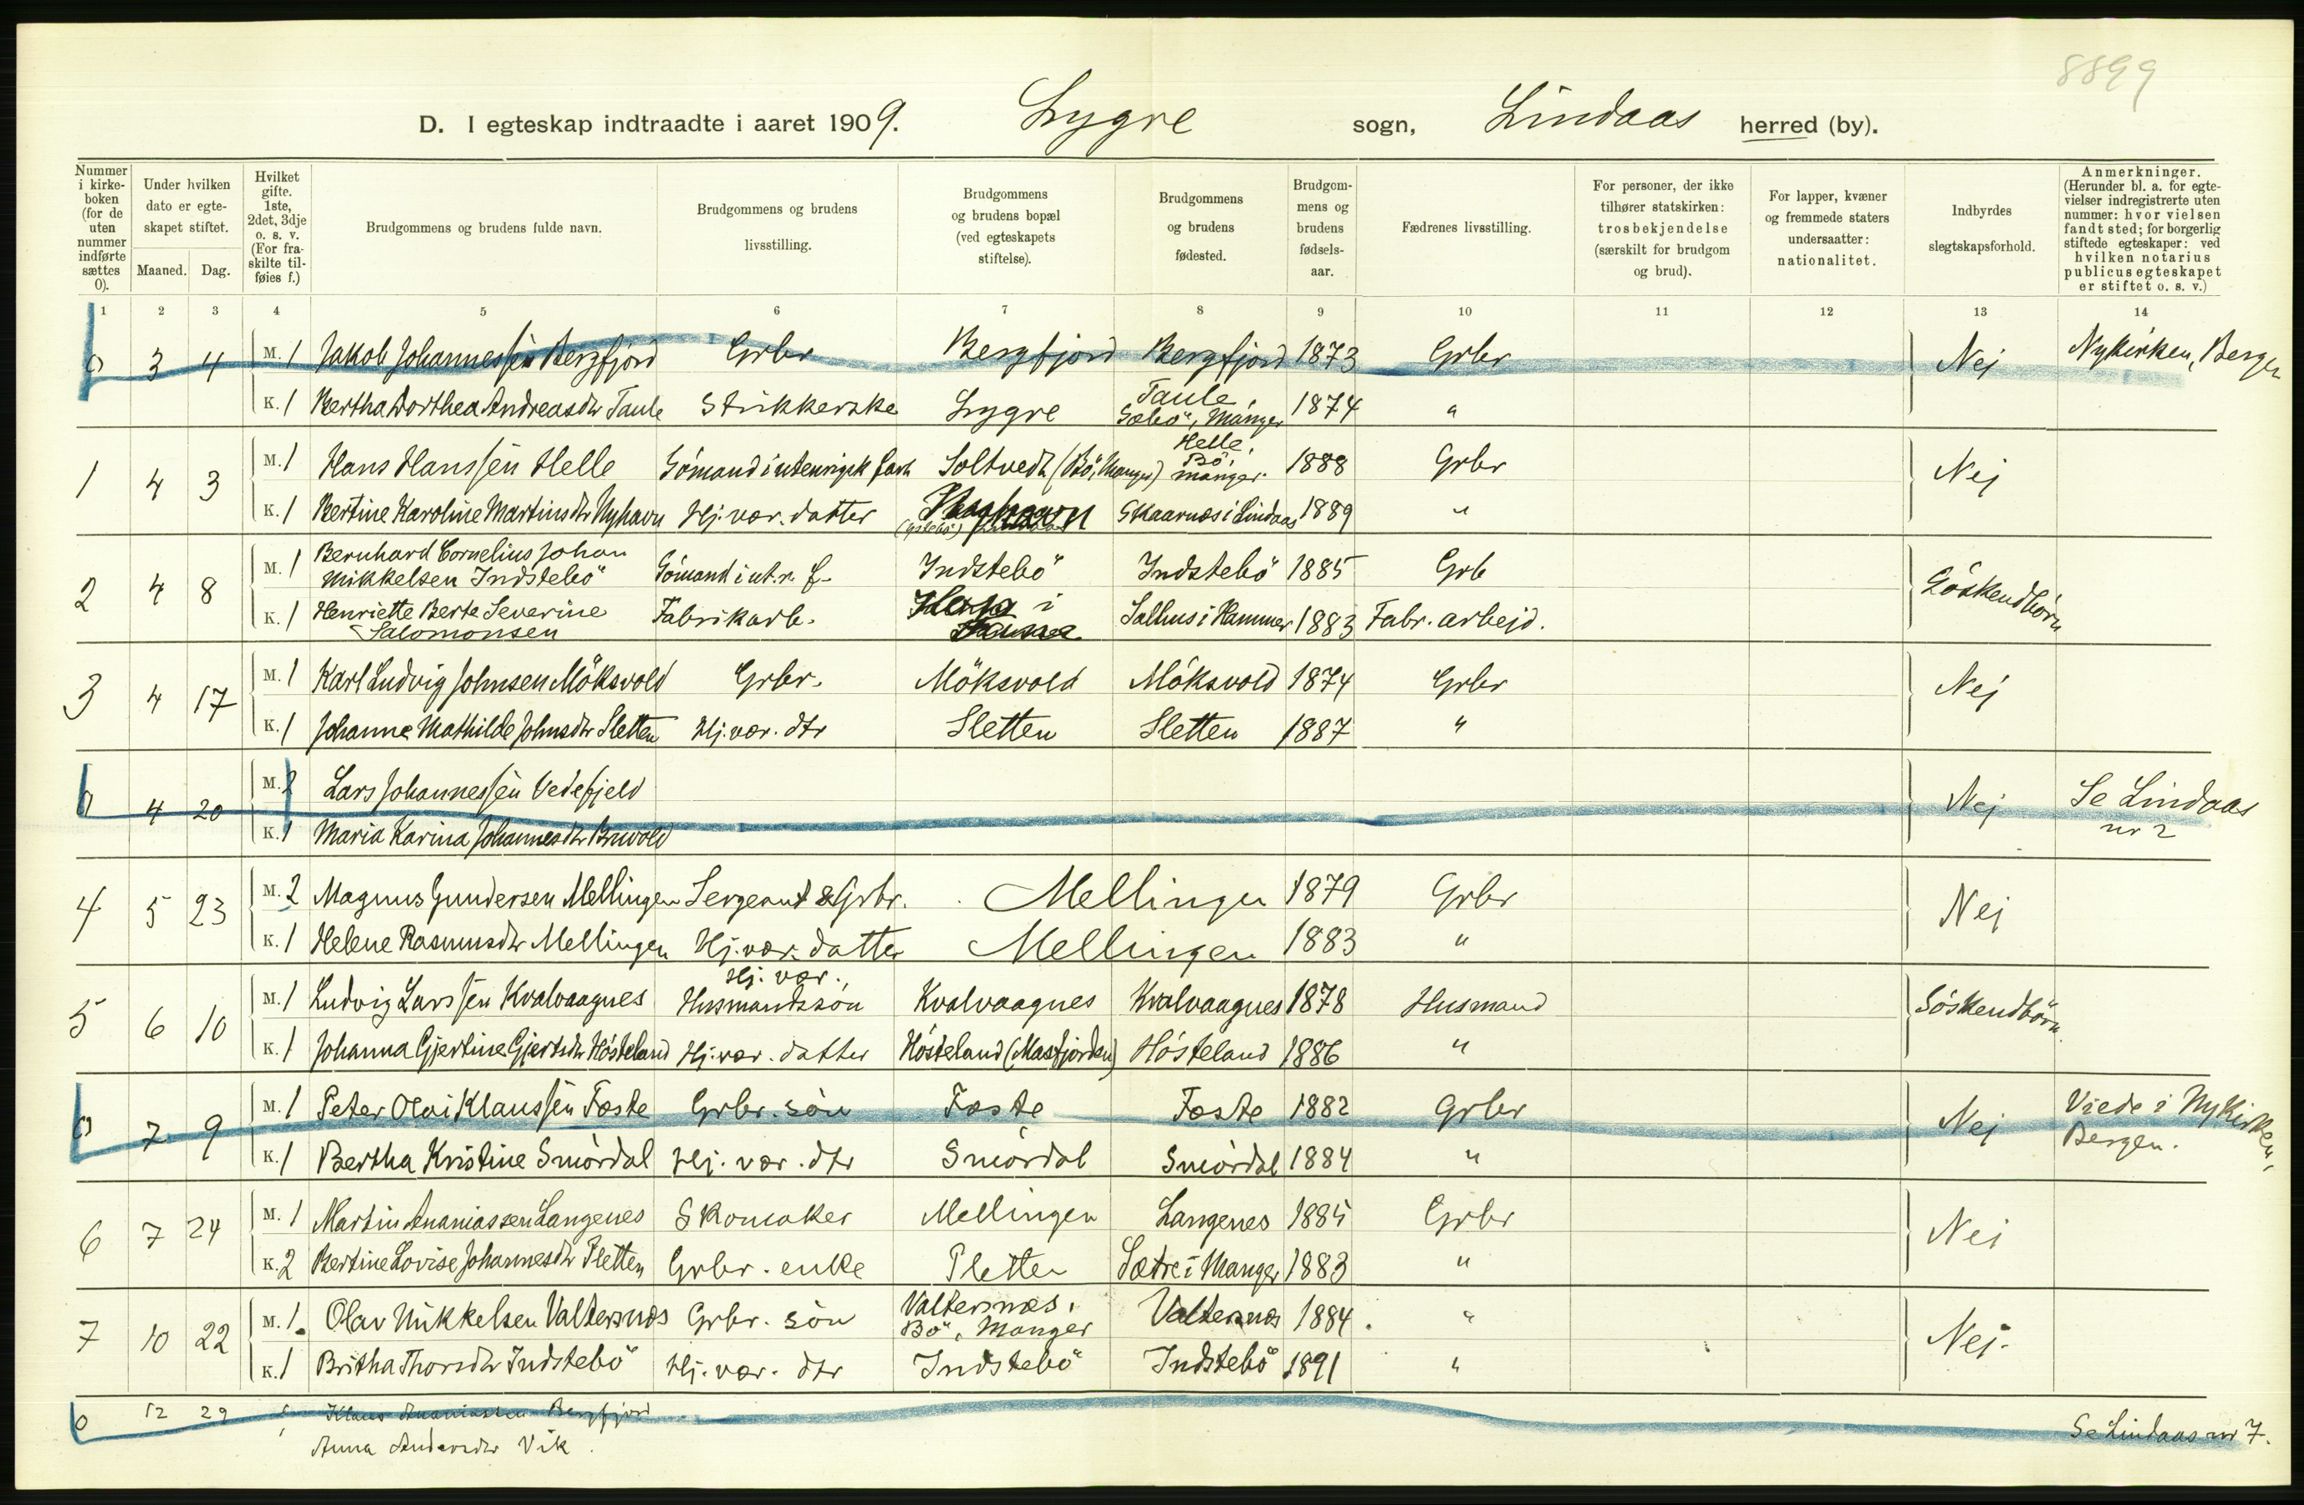 8899
D. I egteskap indtraadte i aaret 1909. Lygre sogn, Lindaas herred (by).
Nummer i kirke-boken (for de uten nummer indførte sættes 0).
Under hvilken dato er egte-skapet stiftet.
Maaned. Dag.
Hvilket gifte. 1ste, 2det, 3dje o. s. v. (For fra-skilte til-føies f.)
Brudgommens og brudens fulde navn.
Brudgommens og brudens livsstilling.
Brudgommens og brudens bopæl (ved egteskapets stiftelse).
Brudgommens og brudens fødested.
Brudgom-mens og brudens fødsels-aar.
Fædrenes livsstilling.
For personer, der ikke tilhører statskirken: trosbekjendelse (særskilt for brudgom og brud).
For lapper, kvæner og fremmede staters undersaatter: nationalitet.
Indbyrdes slegtskapsforhold.
Anmerkninger. (Herunder bl. a. for egte-vielser indregistrerte uten nummer: hvor vielsen fandt sted; for borgerlig stiftede egteskaper: ved hvilken notarius publicus egteskapet er stiftet o. s. v.)
1 2 3 4 5 6 7 8 9 10 11 12 13 14
0 3 4 M. 1 Jakob Johannessen Bergfjord Grbr Bergfjord Bergfjord 1873 Grbr Nej Nykirken, Bergen
K. 1 Bertha Dorthea Andreasdtr Taule Strikkerske Lygre Taule, Sæbö, Manger 1874 "
1 4 3 M. 1 Hans Hanssen Helle Sömand i utenrigsk fart Soltvedt (Bö, Manger) Helle, Bö, Manger 1888 Grbr Nej
K. 1 Bertine Karoline Martinsdtr Nyhavn Hj. vær. datter Skaarnæs i Lindaas 1889 "
2 4 8 M. 1 Bernhard Cornelius Johan Mikkelsen Indstebö Sömand i ut. r. f. Indstebö Indstebö 1885 Grb Söskendbörn
K. 1 Henriette Berte Severine Salomonsen Fabrikarb. i Salhus i Hammer 1883 Fabr. arbejd.
3 4 17 M. 1 Karl Ludvig Johnsen Möksvold Grbr. Möksvold Möksvold 1874 Grbr Nej
K. 1 Johanne Mathilde Johnsdtr Sletten Hj. vær. dtr Sletten Sletten 1887 "
0 4 20 M. 2 Lars Johannessen Vedefjeld Nej Se Lindaas nr 2
K. 1 Maria Karina Johannesdtr
4 5 23 M. 2 Magnus Gundersen Mellingen Sergeant & Grbr. Mellingen 1879 Grbr Nej
K. 1 Helene Rasmusdtr Mellingen Hj. vær. datter Mellingen 1883 "
5 6 10 M. 1 Ludvig Larssen Kvalvaagnes Hj. vær. Husmandssön Kvalvaagnes Kvalvaagnes 1878 Husmand Söskendbörn
K. 1 Johanna Gjertine Gjertsdtr Hösteland Hj. vær. datter Hösteland (Masfjorden) Hösteland 1886 "
0 7 9 M. 1 Peter Olai Klaussen Foste Grbr. sön Foste Foste 1882 Grbr Nej Viede i Nykirken, Bergen.
K. 1 Bertha Kristine Smördal Hj. vær. dtr Smördal Smördal 1884 "
6 7 24 M. 1 Martin Ananiassen Langenes Skomaker Mellingen Langenes 1885 Grbr Nei
K. 2 Bertine Lovise Johannesdtr Pletten Grbr. enke Pletten Sætre i Manger 1883 "
7 10 22 M. 1 Olav Mikkelsen Valtersnæs Grbr. sön Valtersnæs, Bö, Manger Valtersnæs 1884. " Nei.
K. 1 Britha Thorsdtr Indstebö Hj. vær. dtr Indstebö Indstebö 1891 "
0 12 29 1 Klaus Ananiassen Bergfjord Se Lindaas nr 7.
Anna Andersdtr Vik.